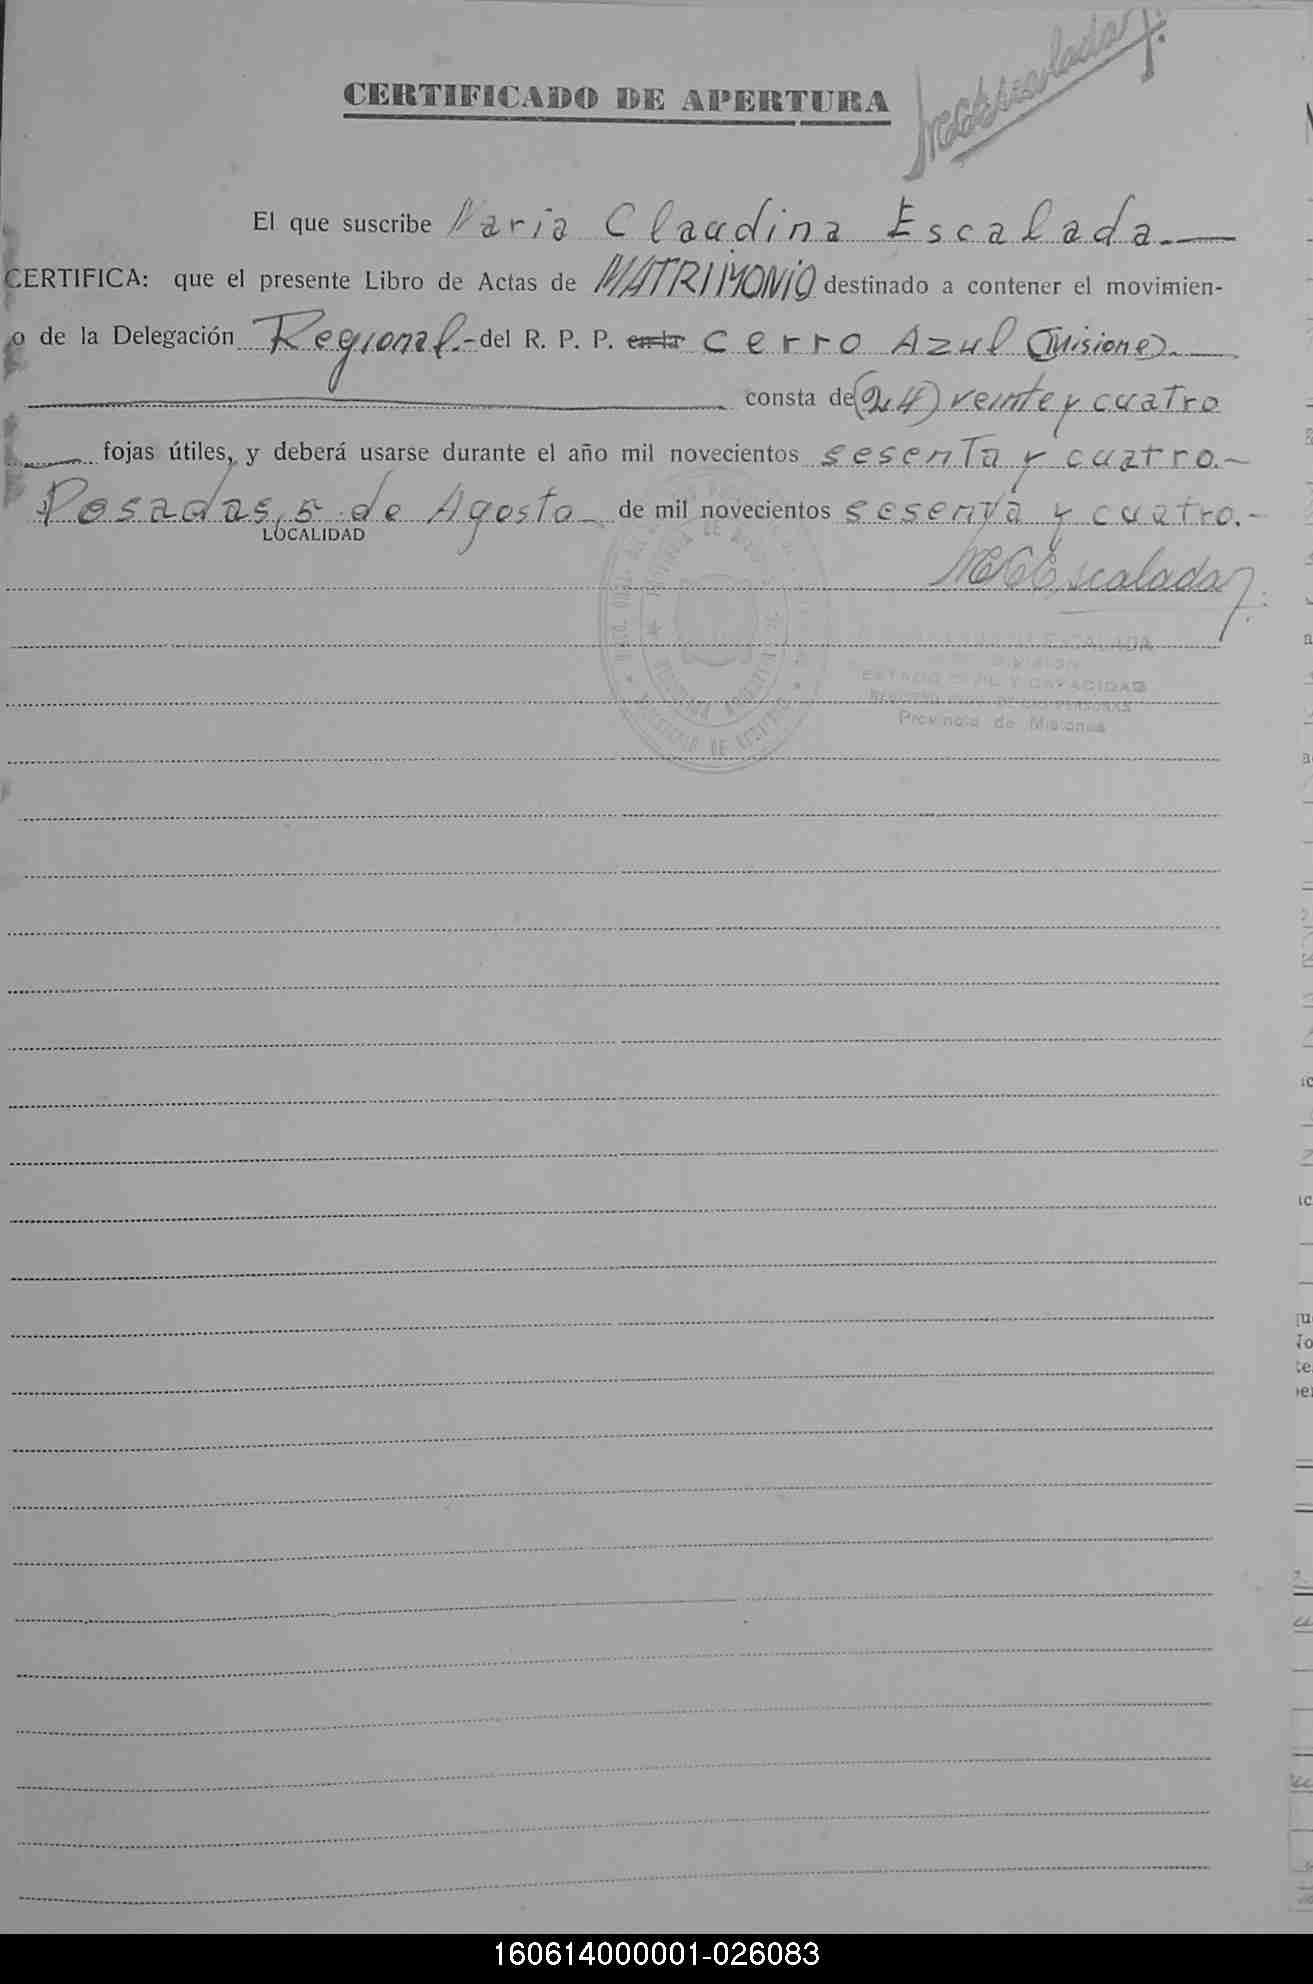 CERTIFICADO DE APERTURA
MCEscalada
El que suscribe Maria Claudina Escalada.—
CERTIFICA: que el presente Libro de Actas de MATRIMONIO destinado a contener el movimien-
o de la Delegación Regional.- del R. P. P. en la Cerro Azul (Misiones).—
consta de (24) veinte y cuatro
fojas útiles, y deberá usarse durante el año mil novecientos sesenta y cuatro.-
Posadas, 5 de Agosto de mil novecientos sesenta y cuatro.-
LOCALIDAD
MCEscalada
ESCALADA
DIVISION
ESTADO CIVIL Y CAPACIDAD
REGISTRO PROV. DE LAS PERSONAS
Provincia de Misiones
160614000001-026083